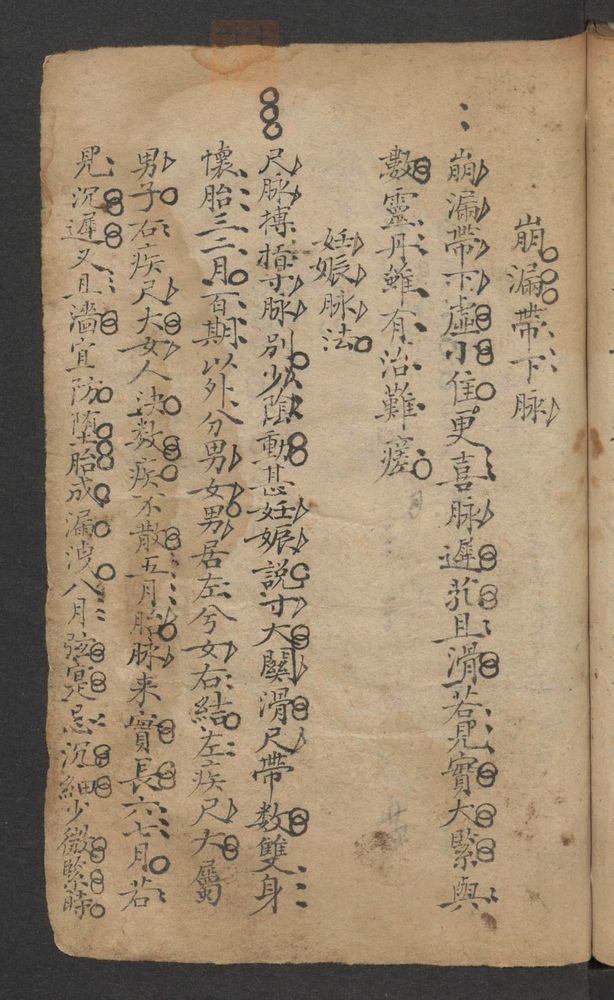 崩漏帶下脉
崩漏帶下虛小佳更喜脉遲芤且滑若見實大緊與
數靈丹雖有治難瘥
妊娠脉法
尺脉摶指寸脉別少陰動甚妊娠說寸大關滑尺帶数雙身
懷胎三二月百期以外分男女男居左兮女右結左疾尺大屬
男子右疾尺大女人決数疾不散五月胎脉来實長六七月若
見沉遲又且濇宜防墮胎成漏洩八月弦寔忌沉細少微緊時